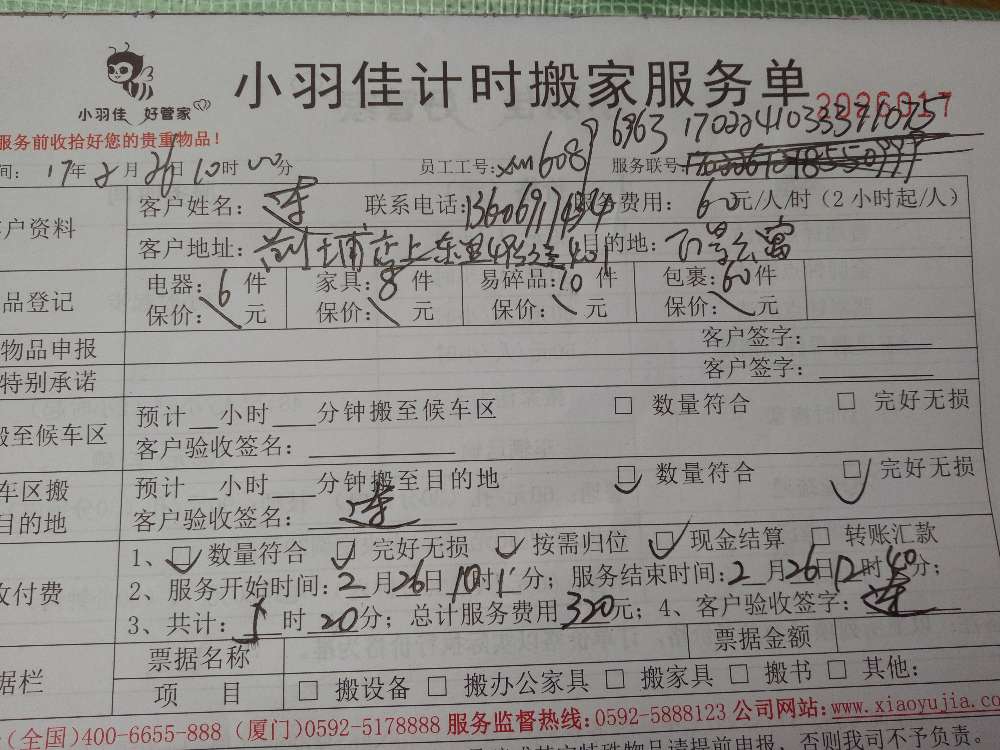 小羽佳 好管家
小羽佳计时搬家服务单
2026017
服务前收拾好您的贵重物品！
6963 17022410333
间： 17年 2月 26日 10时 00分 员工工号： xm6089 服务联号：
客户资料 客户姓名： 连 联系电话： 服务费用： 60元/人/时（2小时起/人）
客户地址： 莲上东里49号 401 目的地： 公寓
品登记 电器： 6 件 家具： 8 件 易碎品： 10 件 包裹： 60 件
保价： 元 保价： 元 保价： 元 保价： 元
物品申报 客户签字：
特别承诺 客户签字：
搬至候车区 预计 小时 分钟搬至候车区 □ 数量符合 □ 完好无损
客户验收签名：
车区搬 预计 小时 分钟搬至目的地 □ 数量符合 □ 完好无损
目的地 客户验收签名： 连
收付费 1、□ 数量符合 □ 完好无损 □ 按需归位 □ 现金结算 □ 转账汇款
2、服务开始时间：2月26日10时 分；服务结束时间：2月26日12时40分；
3、共计： 时 20分；总计服务费用320元；4、客户验收签字： 连
据栏 票据名称 票据金额
项 目 □ 搬设备 □ 搬办公家具 □ 搬家具 □ 搬书 □ 其他：
(全国)400-6655-888 (厦门)0592-5178888 服务监督热线：0592-5888123 公司网站：www.xiaoyujia.co
特殊物品请提前申报，否则我司不予负责。